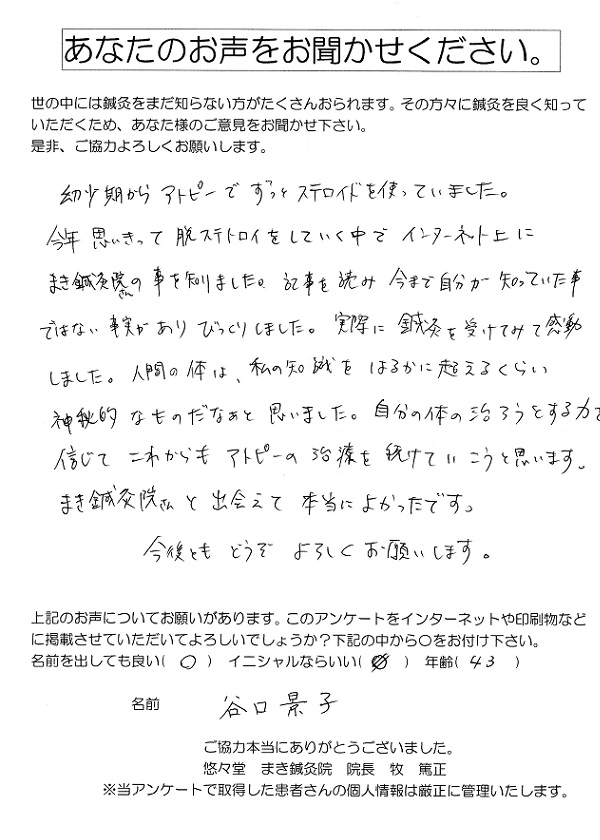 あなたのお声をお聞かせください。
世の中には鍼灸をまだ知らない方がたくさんおられます。その方々に鍼灸を良く知って
いただくため、あなた様のご意見をお聞かせ下さい。
是非、ご協力よろしくお願いします。
幼少期から アトピーで ずっと ステロイドを使っていました。
今年 思いきって 脱ステトロイをしていく中で インターネット上に
まき鍼灸院さんの事を知りました。記事を読み 今まで自分が 知っていた事
ではない 事実があり びっくりしました。実際に 鍼灸を受けてみて感動
しました。人間の体は、私の知識を はるかに超えるくらい
神秘的 なものだなぁと 思いました。自分の体の治ろうとする力を
信じて これからも アトピーの 治療を 続けていこうと思います。
まき鍼灸院さんと 出会えて 本当によかったです。
今後とも どうぞ よろしくお願いします。
上記のお声についてお願いがあります。このアンケートをインターネットや印刷物など
に掲載させていただいてよろしいでしょうか？下記の中から〇をお付け下さい。
名前を出しても良い( 〇 ) イニシャルならいい( ) 年齢( 43 )
名前 谷口景子
ご協力本当にありがとうございました。
悠々堂 まき鍼灸院 院長 牧 篤正
※当アンケートで取得した患者さんの個人情報は厳正に管理いたします。